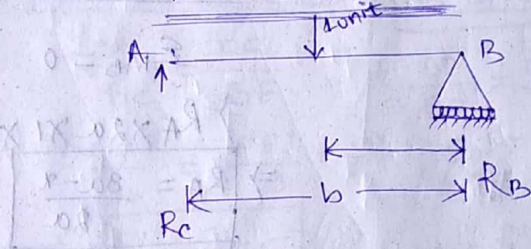 1 unit
A
B
b
R_B
R_C